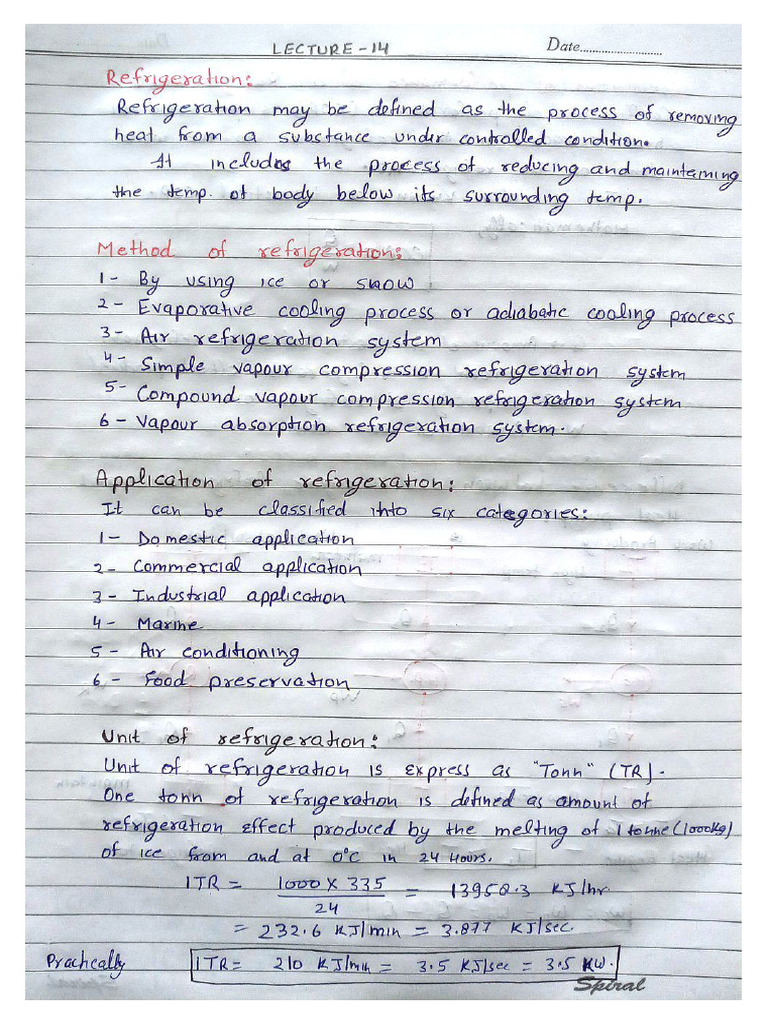 LECTURE - 14
Date..........................
Refrigeration:
Refrigeration may be defined as the process of removing
heat from a substance under controlled condition.
It includes the process of reducing and maintaining
the temp. of body below its surrounding temp.
Method of refrigeration:
1 - By using ice or snow
2 - Evaporative cooling process or adiabatic cooling process
3 - Air refrigeration system
4 - Simple vapour compression refrigeration system
5 - Compound vapour compression refrigeration system
6 - Vapour absorption refrigeration system.
Application of refrigeration:
It can be classified into six categories:
1 - Domestic application
2 - Commercial application
3 - Industrial application
4 - Marine
5 - Air conditioning
6 - Food preservation
Unit of refrigeration:
Unit of refrigeration is express as "Tonn" (TR).
One tonn of refrigeration is defined as amount of
refrigeration effect produced by the melting of 1 tonne (1000kg)
of ice from and at 0°C in 24 Hours.
1TR = 1000 X 335 / 24 = 13958.3 KJ/hr.
= 232.6 KJ/min = 3.877 KJ/sec.
Practically 1TR = 210 KJ/min = 3.5 KJ/sec = 3.5 KW.
Spiral